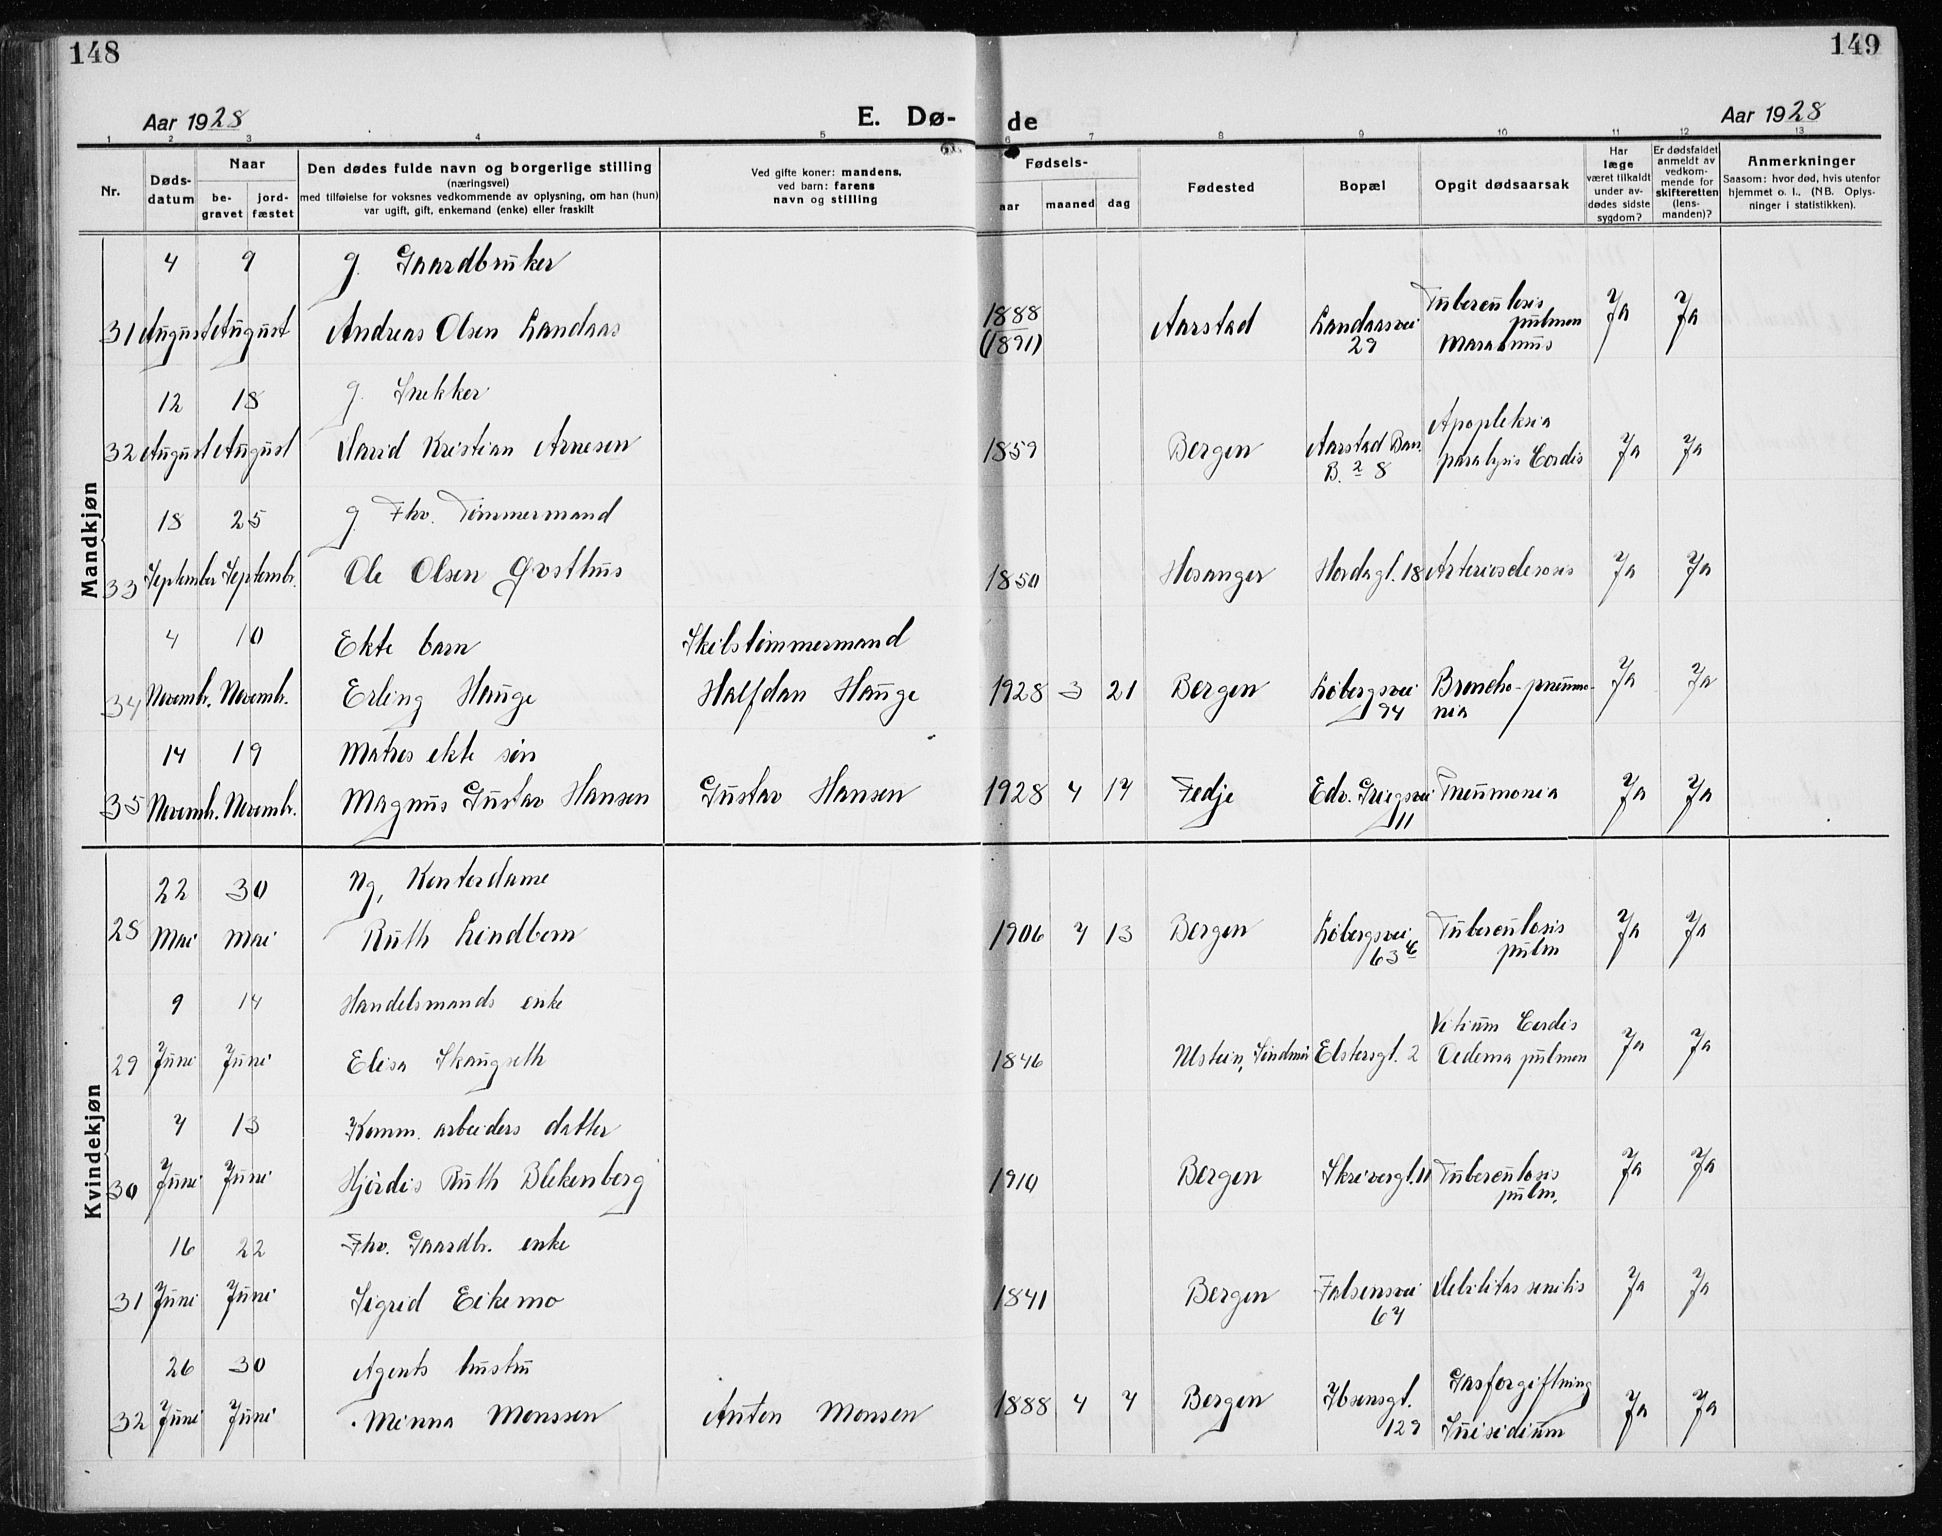 148
149
Aar 1928
E. Dø-
de
Aar 1928
1 2 3 4 5 6 7 8 9 10 11 12 13
Nr.
Døds-
datum
Naar
be-
gravet
jord-
fæstet
Den dødes fulde navn og borgerlige stilling
(næringsvei)
med tilføielse for voksnes vedkommende av oplysning, om han (hun)
var ugift, gift, enkemand (enke) eller fraskilt
Ved gifte koner: mandens,
ved barn: farens
navn og stilling
Fødsels-
aar maaned dag
Fødested
Bopæl
Opgit dødsaarsak
Har
læge
været tilkaldt
under av-
dødes sidste
sygdom?
Er dødsfaldet
anmeldt av
vedkom-
mende for
skifteretten
(lens-
manden)?
Anmerkninger
Saasom: hvor død, hvis utenfor
hjemmet o. l., (NB. Oplys-
ninger i statistikken).
Mandkjøn
4 9 g. Gaardbruker
31 August August Andreas Olsen Landaas 1888 Aarstad Landaasvei Tuberculosis Ja Ja
(1891) 29 pulmon
Marasmus
12 18 g. Snekker
32 August August David Kristian Arnesen 1859 Bergen Aarstad Ban. Apopleksia Ja Ja
B. 2 8 paralysis Cordis
18 25 g. Fhv. Tømmermand
33 September Septembr. Ole Olsen Østhus 1850 Hosanger Hordagt. 18 Arteriosclerosis Ja Ja
4 10 Ekte barn Skibstømmermand
34 Novemb. Novemb. Erling Hauge Halfdan Hauge 1928 3 21 Bergen Løbergsvei Broncho-pneumo- Ja Ja
94 nia
14 19 Matros ekte søn
35 Novemb. Novemb. Magnus Gustav Hansen Gustav Hansen 1928 4 17 Fedje Edv. Griegsvei Pneumonia Ja Ja
11
Kvindekjøn
22 30 Ug, Kontordame
28 Mai Mai Ruth Lindbom 1906 7 13 Bergen Løbergsvei Tuberculosis Ja Ja
63 pulm
9 14 Handelsmands enke
29 Juni Juni Elisa Skaugseth 1846 Ulstein, Søndmør Elstersgt. 2 Vitium Cordis Ja Ja
Oedema pulmon
7 13 Komm. arbeiders datter
30 Juni Juni Hjørdis Ruth Blekenberg 1910 Bergen Skrivergt. 11 Tuberculosis Ja Ja
pulm.
16 22 Fhv. Gaardbr. enke
31 Juni Juni Sigrid Eikemo 1841 Bergen Falsensvei Debilitas senilis Ja Ja
67
26 30 Agents hustru
32 Juni Juni Minna Monssen Anton Monsen 1888 4 7 Bergen Ibsensgt. Gasforgiftning Ja Ja
129 Suisidium